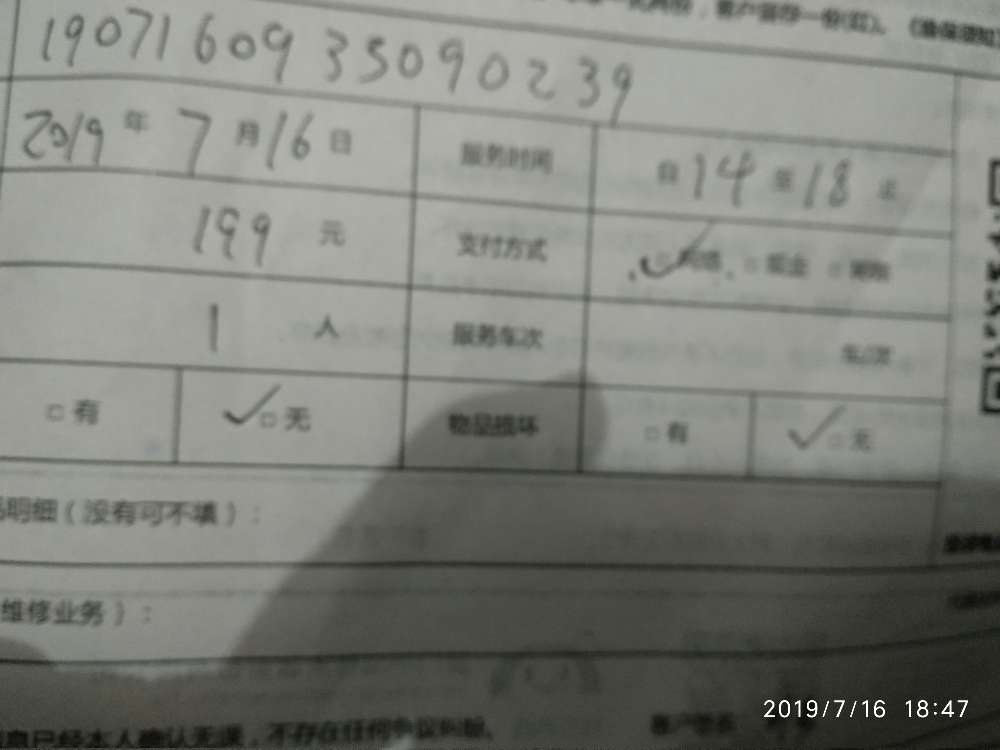 一式两份，客户留存一份(红)。
1907160935090239
2019年7月16日 服务时间 自14至18止
199元 支付方式 ✓□网络 □现金 □
1人 服务车次 车/次
□有 ✓□无 物品损坏 □有 ✓□无
明细（没有可不填）：
维修业务）：
已经本人确认无误，不存在任何争议纠纷。 客户签名
2019/7/16 18:47